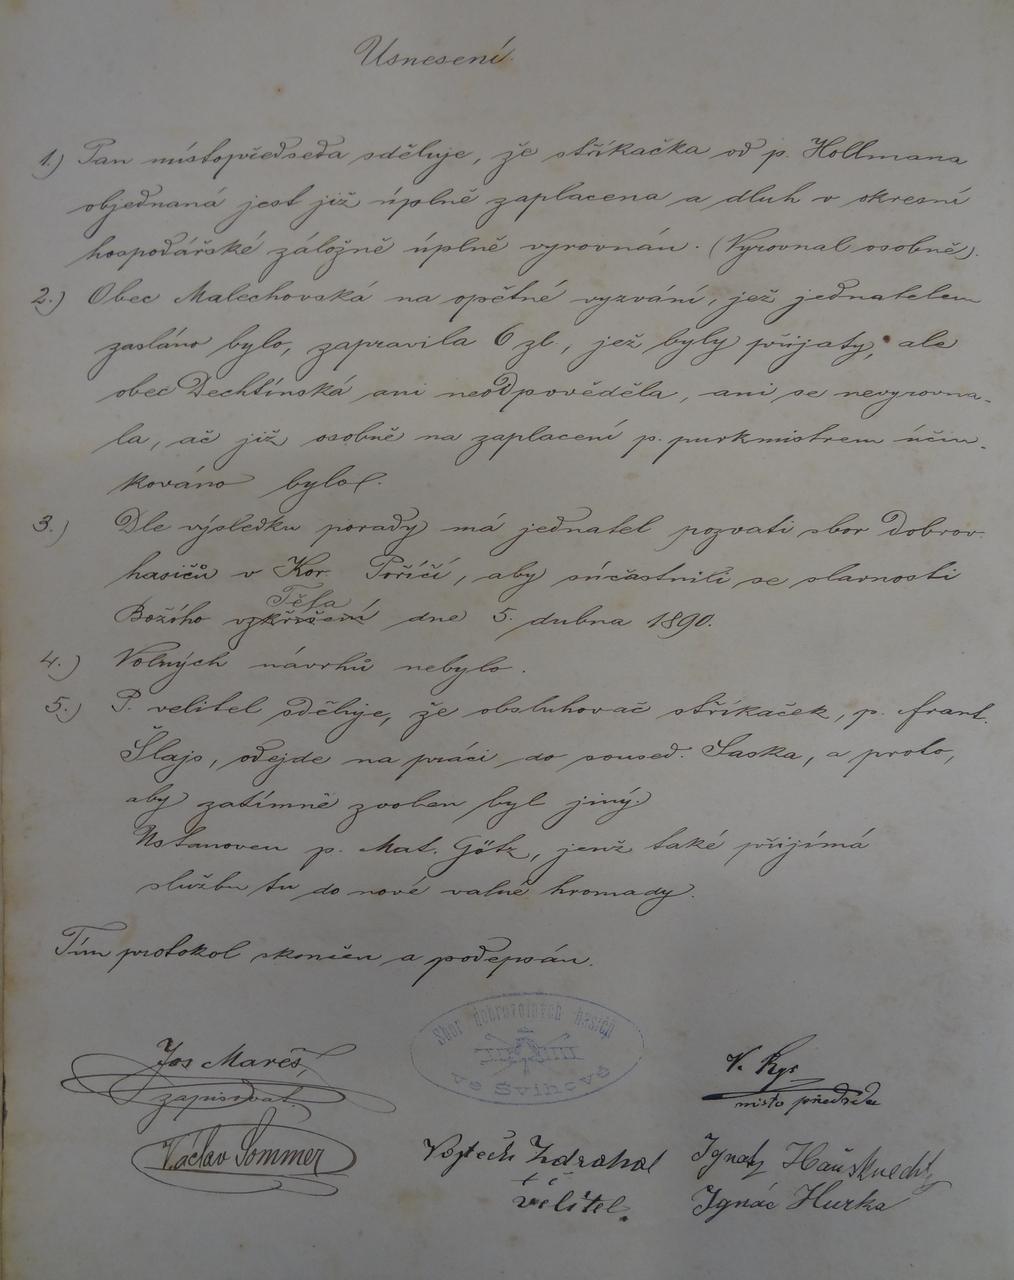 Usnesení.
1.) Pan místopředseda sděluje, že stříkačka od p. Hollmana
objednaná jest již úplně zaplacena a dluh v okresní
hospodářské záložně úplně vyrovnán. (Vyrovnal osobně).
2.) Obec Malechovská na opětné vyzvání, jež jednatelem
zasláno bylo, zapravila 6 zl., jež byly přijaty, ale
obec Dechtínská ani neodpověděla, ani se nevyrovna-
la, ač již osobně na zaplacení p. purkmistrem účin-
kováno bylo.
3.) Dle výsledku porady má jednatel pozvati sbor dobrov.
hasičů v Kor. Poříčí, aby súčastnili se slavnosti
Těla
Božího vzkříšení dne 5. dubna 1890.
4.) Volných návrhů nebylo.
5.) P. velitel sděluje, že obsluhovač stříkaček, p. Frant.
Šlajs, odejde na práci do soused. Saska, a proto,
aby zatímně zvolen byl jiný.
Ustanoven p. Mat. Götz, jenž také přijímá
službu tu do nové valné hromady.
Tím protokol skončen a podepsán.
Sbor dobrovolných hasičů
ve Švihově
Jos Mareš,
zapisovatel.
V. Rys
místo předseda
Václav Sommer
Vojtěch Zdrahal
velitel.
Ignatz Hausknecht
Ignác Hurka